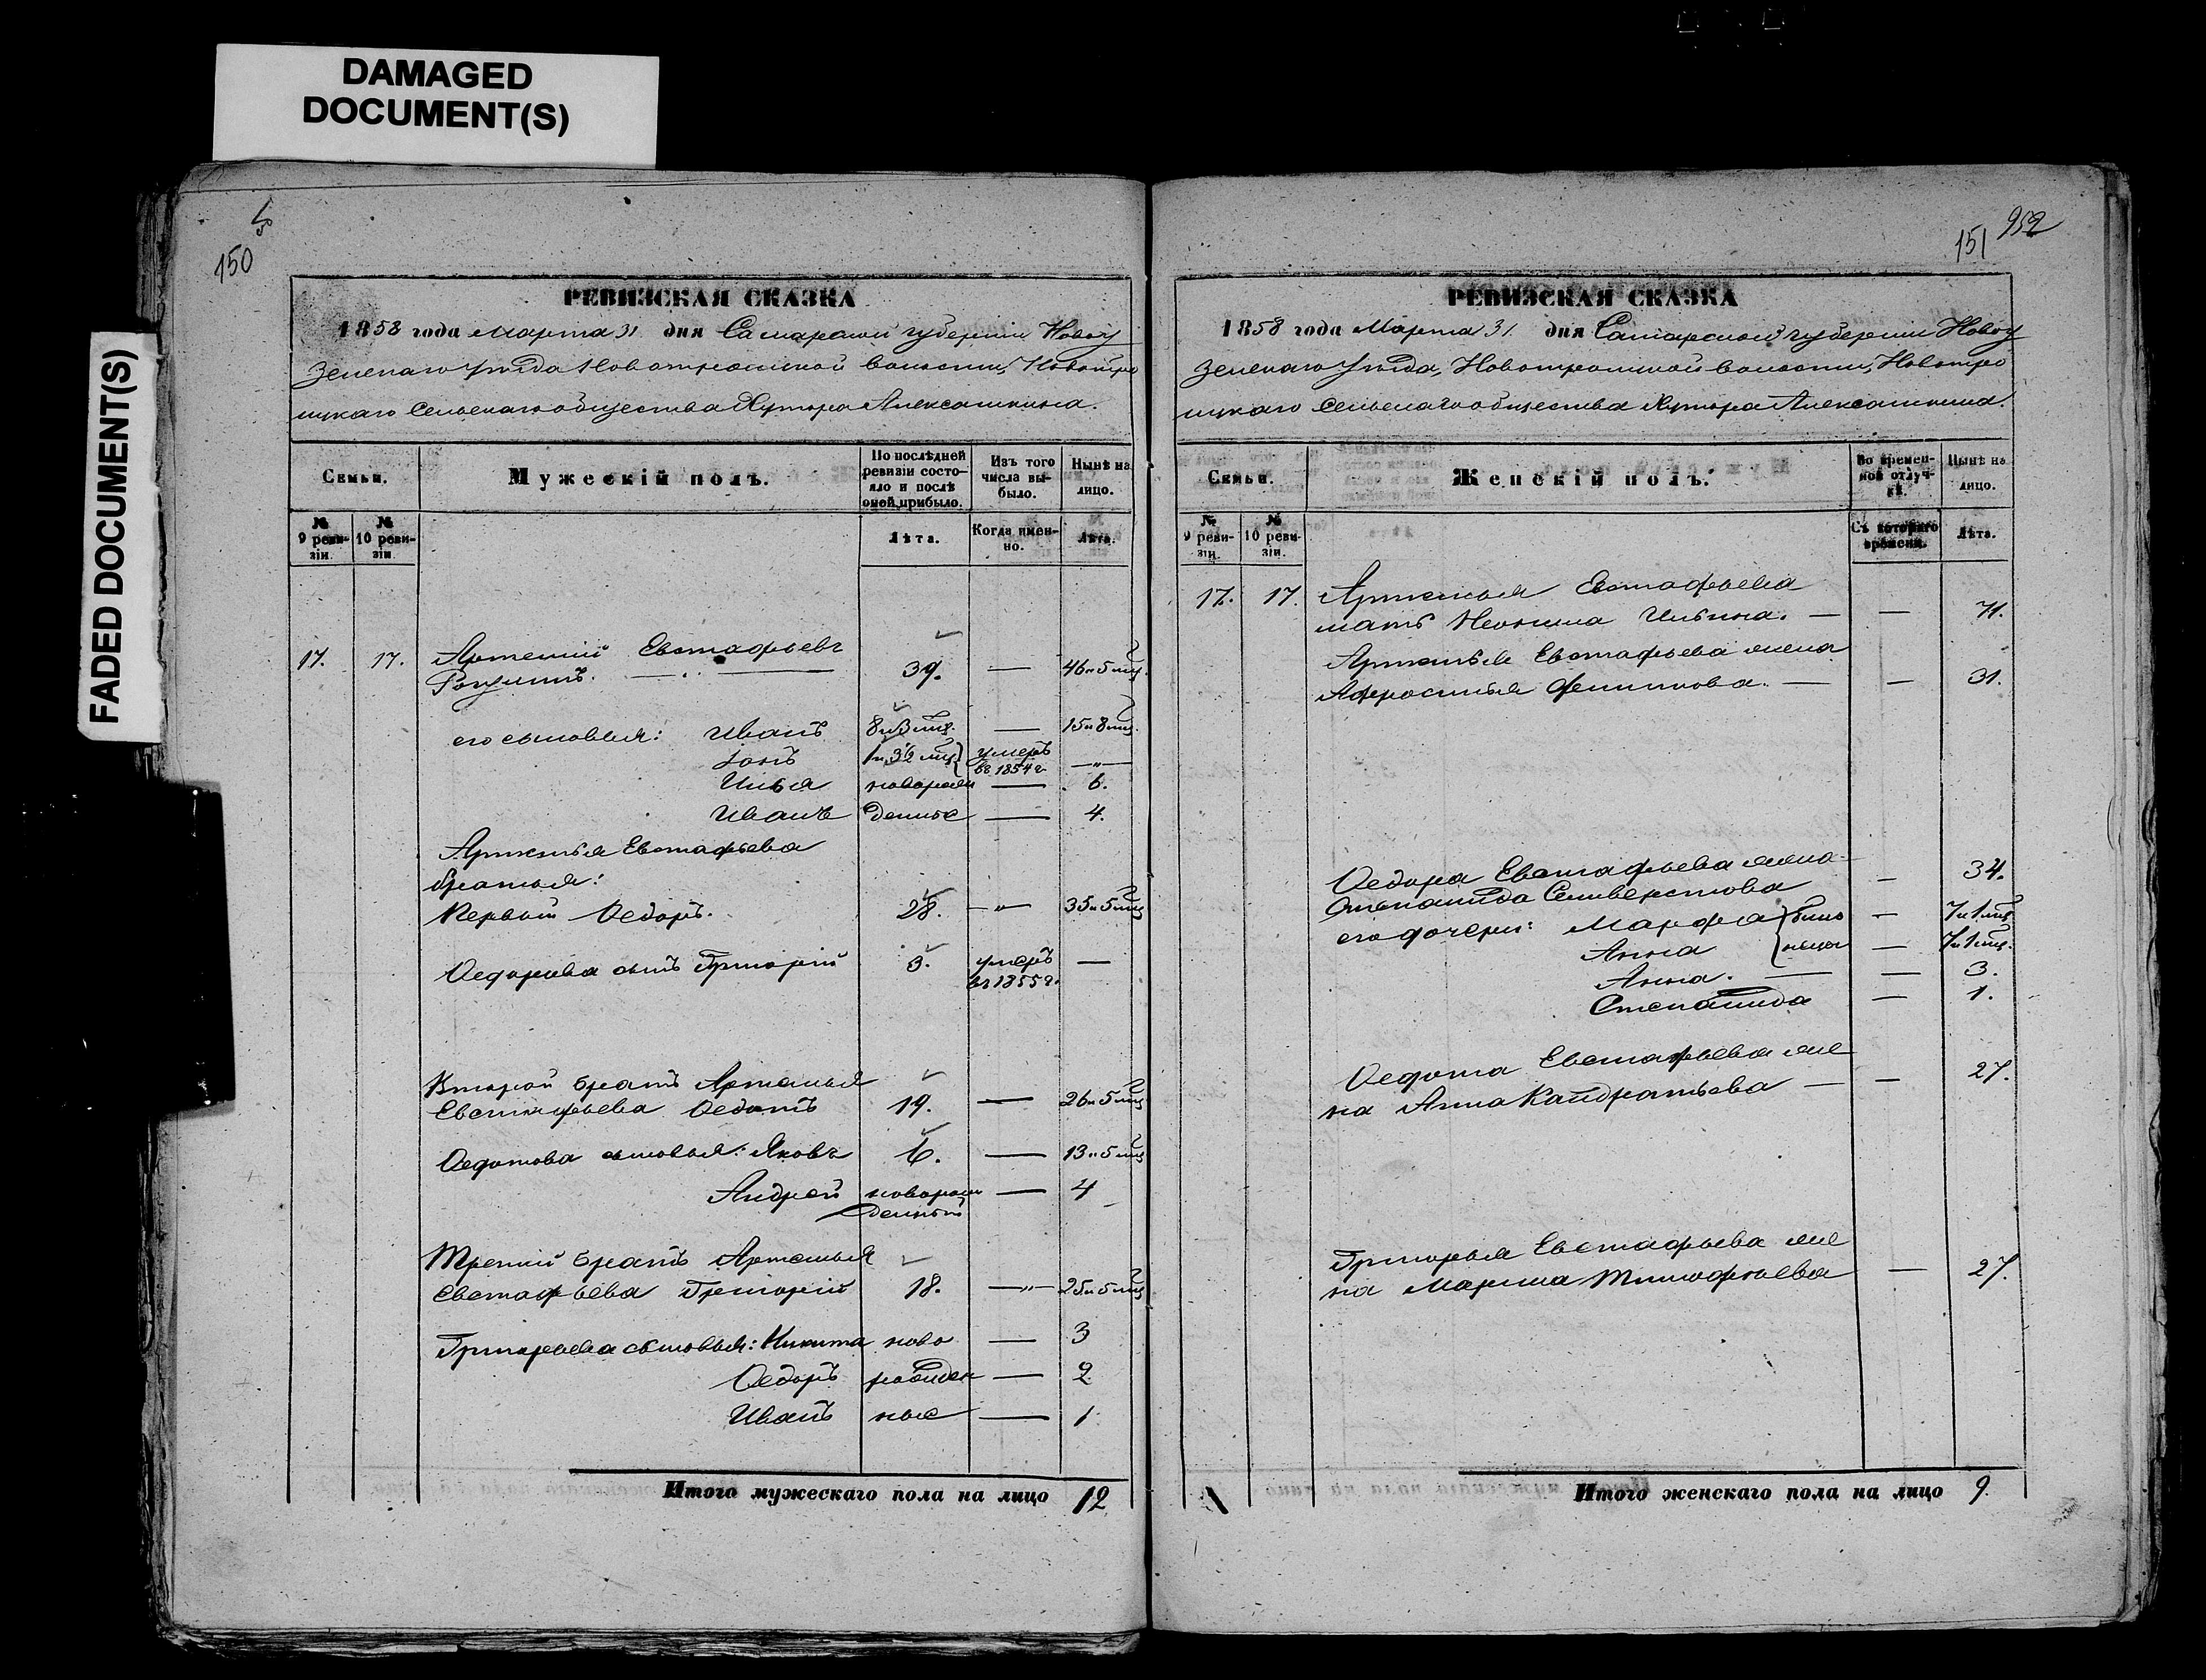 DAMAGED
DOCUMENT(S)
FADED DOCUMENT(S)
150
РЕВИЗСКАЯ СКАЗКА
1858 года Марта 31 дня Самарской губернии Новоу
зенскаго уѣзда Новотроицкой волости, Новотро
ицкаго сельскаго общества Хутора Алексашкина.
Семьи.
Мужескій полъ.
По послѣдней ревизіи состояло и послѣ оной прибыло.
Изъ того числа выбыло.
Нынѣ на лицо.
№ 9 ревизіи.
№ 10 ревизіи.
Лѣта.
Когда именно.
Лѣта.
17. 17. Артемій Евстафьевъ
39. — 46 и 5 мц.
его сыновья: Иванъ 8 и 3 мц. — 15 и 8 мц.
1 и 3½ мц. умеръ въ 1854 г. —"—
Илья новорож — 6.
Иванъ денные — 4.
Артемья Евстафьева
братья:
Первый Ѳедоръ. 28. —"— 35 и 5 мц
Ѳедорова сынъ Григорій 3. умеръ —
въ 1855 г.
Второй братъ Артемья
Евстафьева Ѳедотъ 19. — 26 и 5 мц
Ѳедотова сыновья: Яковъ 6. — 13 и 5 мц
Андрей новорож — 4
денный
Третій братъ Артемья
Евстафьева Григорій 18. —"— 25 и 5 мц
Григорьева сыновья: Никита ново — 3
Ѳедоръ рожден — 2
Иванъ ные — 1.
Итого мужескаго пола на лицо 12
151 952
РЕВИЗСКАЯ СКАЗКА
1858 года Марта 31. дня Самарской губернии Новоу
зенскаго уѣзда, Новотроицкой волости, Новотро
ицкаго сельскаго общества Хутора Алексашкина.
Семьи.
Женскій полъ.
Во временной отлучкѣ.
Нынѣ на лицо.
№ 9 ревизіи.
№ 10 ревизіи.
Съ котораго времени.
Лѣта.
17. 17. Артемья Евстафьева
мать Ильина. — — 71.
Артемья Евстафьева жена
Афросинья Филипова. — — 31.
Ѳедора Евстафьева жена
Степанида Селиверстова — 34.
его дочери: Марфа близ — 7 и 1 мц
Анна нецы — 7 и 1 мц.
Анна. — — 3.
Степанида — 1.
Ѳедота Евстафьева же
на Анна Кандратьева — — 27.
Григорья Евстафьева же
на Марина Тимофѣева — 27.
Итого женскаго пола на лицо 9.